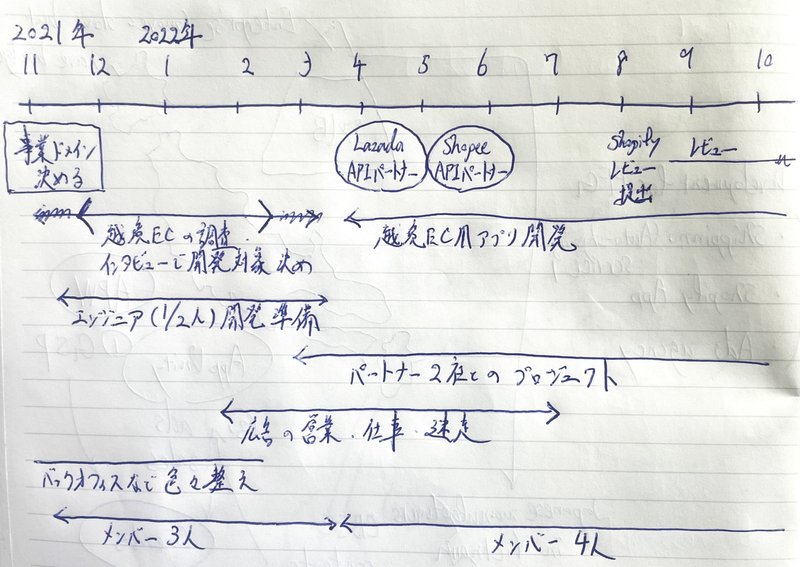 2021年 2022年
11 12 1 2 3 4 5 6 7 8 9 10
事業ドメイン
決める
Lazada
APIパートナー
Shopee
APIパートナー
Shopify
レビュー
提出
レビュー
越境ECの調査・
インタビューで開発対象決め
越境EC用アプリ開発
エンジニア(1/2人)開発準備
パートナー2店とのプロジェクト
広告の営業・仕事・迷走
バックオフィスなど色々整え
メンバー3人
メンバー4人